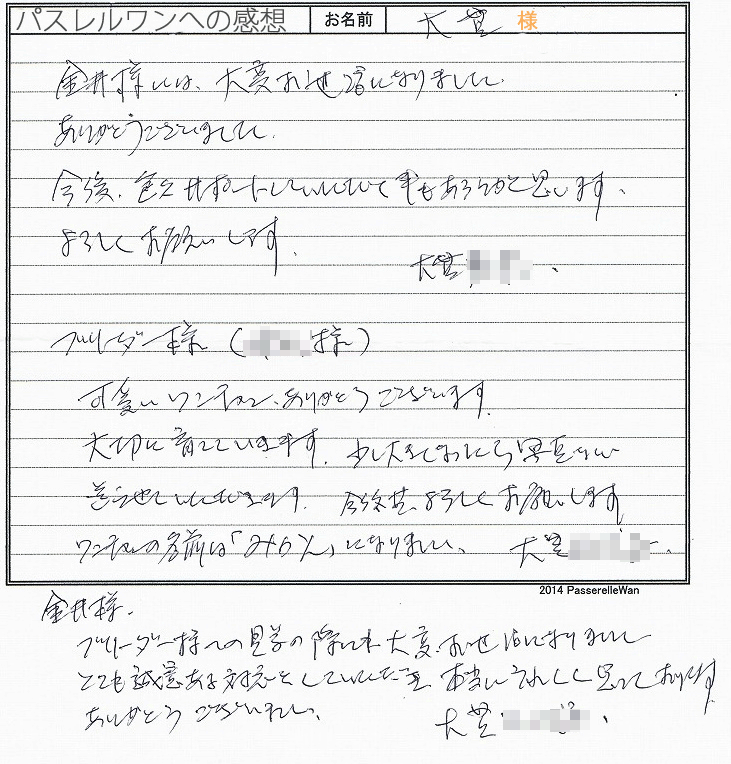 パスレルワンへの感想 お名前 大貫 様
金井様には、大変お世話になりました。
ありがとうございました。
今後、色々サポートしていただく事もあろうかと思います、
よろしくお願いします。
大貫
ブリーダー様(様)
可愛いワンチャン、ありがとうございます。
大切に育てていきます。少し大きくなったら写真を
送らせていただきます。今後共、よろしくお願いします
ワンチャンの名前は「みらん」になりました。 大貫
2014 PasserelleWan
金井様、
ブリーダー様への見学の際にも大変、お世話になりました
とても誠意ある対応をしていただき、本当にうれしく思っております
ありがとうございました。 大貫